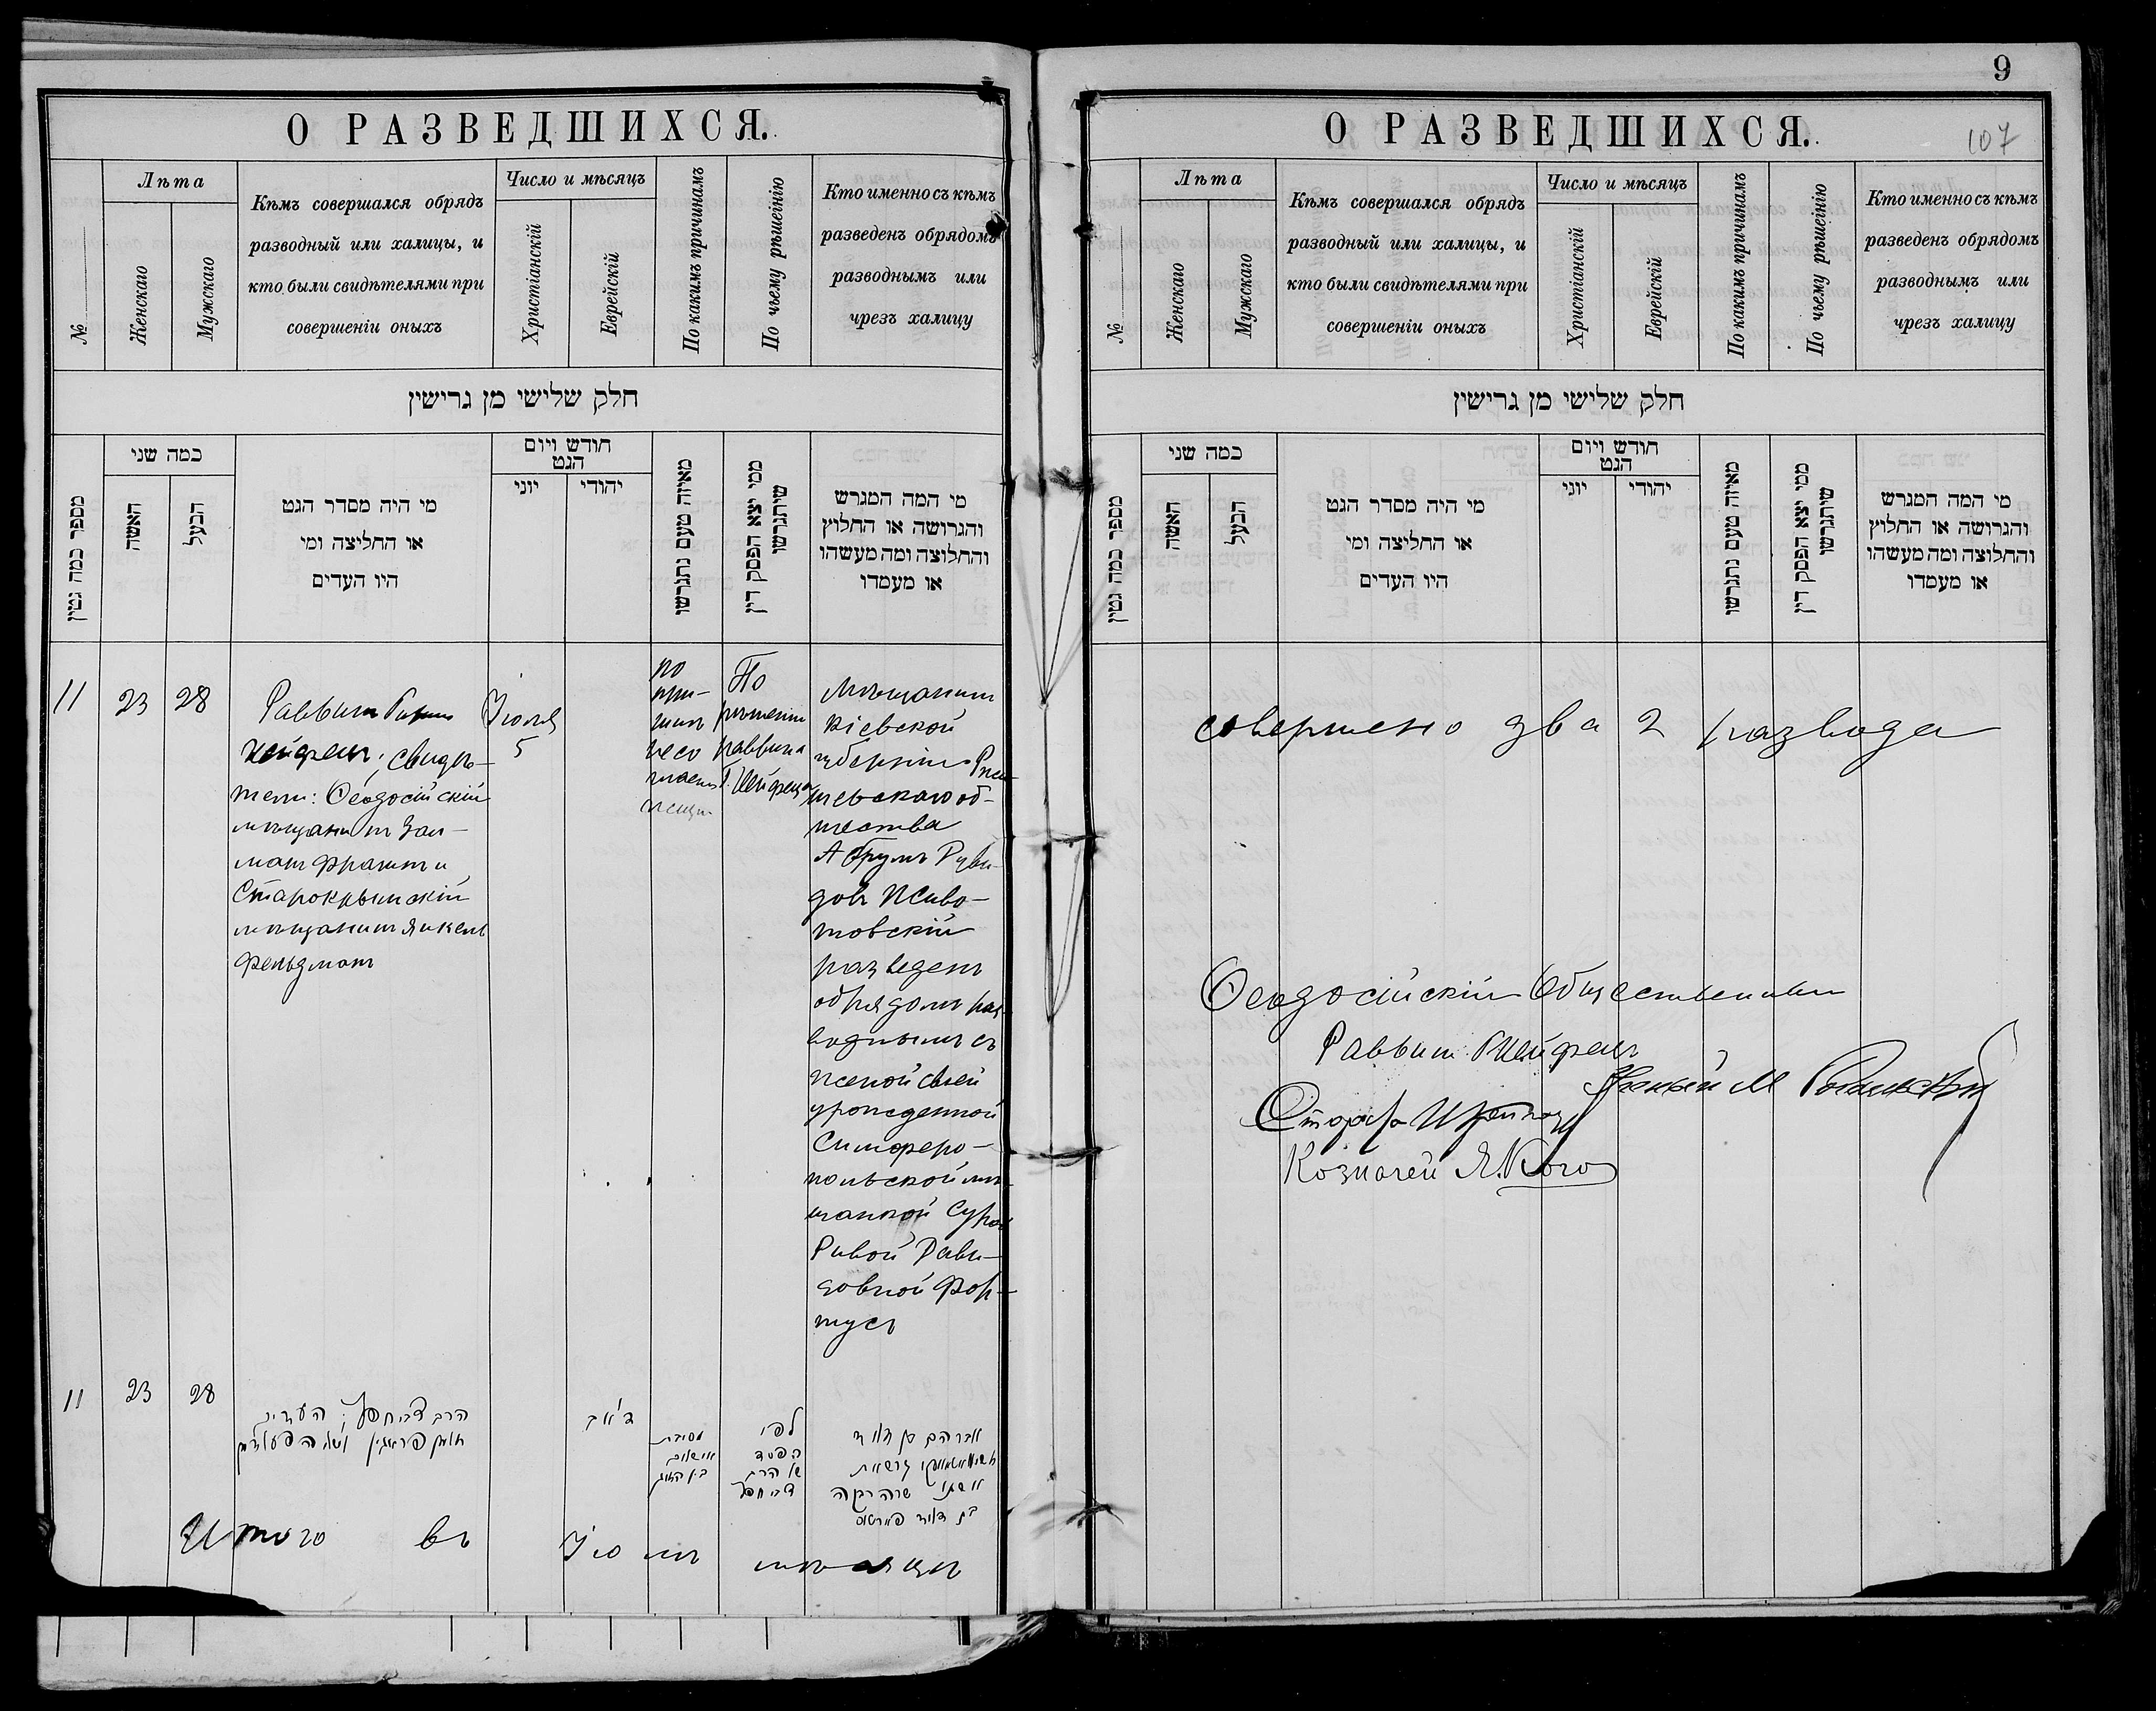 О РАЗВЕДШИХСЯ.
№
Лѣта
Женскаго
Мужскаго
Кѣмъ совершался обрядъ
разводный или халицы, и
кто были свидѣтелями при
совершеніи оныхъ
Число и мѣсяцъ
Христіанскій
Еврейскій
По какимъ причинамъ
По чьему рѣшеінію
Кто именно съ кѣмъ
разведенъ обрядомъ
разводнымъ или
чрезъ халицу
חלק שלישי מן גרישין
מספר כמה גטין
כמה שני
האשה
הבעל
מי היה מסדר הגט
או החליצה ומי
היו העדים
חודש ויום
הגט
יוני
יהודי
מאיזה טעם נתגרשו
ממי יצא הפסק דין
שיתגרשו
מי המה המגרש
והגרושה או החלוץ
והחלוצה ומה מעשהו
או מעמדו
11
23
28
Раввинъ
Цейфелъ; свидѣ-
тели: Ѳеодосійскій
мѣщанинъ Зал-
манъ и
Старокрымскій
мѣщанинъ Янкель
Фельдманъ
Іюля
5
по
при-
чинѣ
несо
гласія
По
рѣшенію
раввина
мѣщанинъ
Кіевской
губерніи
об-
щества
Абрумъ
довъ Живо-
товскій
разведенъ
обрядомъ раз-
воднымъ съ
женой своей
урожденной
Симферо-
польской мѣ-
щанкой Сурой
Ривой Дави-
довной Фор-
тусъ
11
23
28
הרב העדים
לפי
של הרב
אברהם בן דוד
אשתו שרה רבקה
בת דוד
Итого въ Іюлѣ мѣсяцѣ
9
107
О РАЗВЕДШИХСЯ.
№
Лѣта
Женскаго
Мужскаго
Кѣмъ совершался обрядъ
разводный или халицы, и
кто были свидѣтелями при
совершеніи оныхъ
Число и мѣсяцъ
Христіанскій
Еврейскій
По какимъ причинамъ
По чьему рѣшеінію
Кто именно съ кѣмъ
разведенъ обрядомъ
разводнымъ или
чрезъ халицу
חלק שלישי מן גרישין
מספר כמה גטין
כמה שני
האשה
הבעל
מי היה מסדר הגט
או החליצה ומי
היו העדים
חודש ויום
הגט
יוני
יהודי
מאיזה טעם נתגרשו
ממי יצא הפסק דין
שיתגרשו
מי המה המגרש
והגרושה או החלוץ
והחלוצה ומה מעשהו
או מעמדו
совершено два 2 развода
Ѳеодосійскій Общественный
Раввинъ
Ученый М
Староста
Козначей Я.